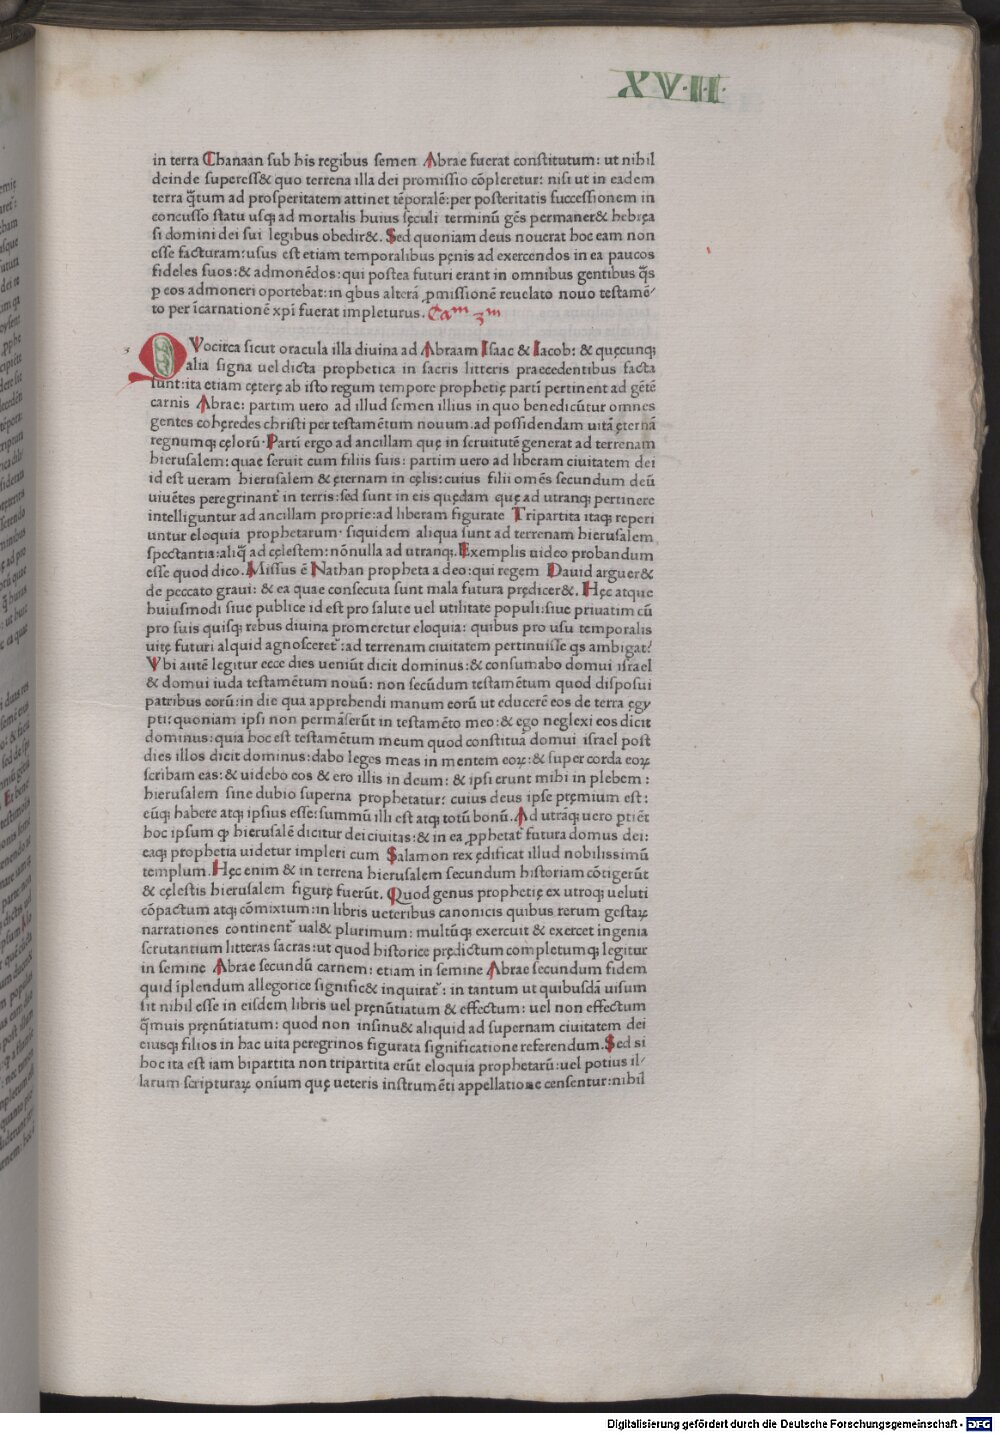 XVII
in terra Chanaan sub his regibus semen Abrae fuerat constitutum: ut nihil
deinde superess& quo terrena illa dei promissio cōpleretur: nisi ut in eadem
terra q̄tum ad prosperitatem attinet tēporalē: per posteritatis successionem in
concusso statu usq; ad mortalis huius sęculi terminū gēs permaner& hebręa
si domini dei sui legibus obedir&. Sed quoniam deus nouerat hoc eam non
esse facturam: usus est etiam temporalibus pęnis ad exercendos in ea paucos
fideles suos: & admonēdos: qui postea futuri erant in omnibus gentibus q̄s
ꝑ eos admoneri oportebat: in qbus alterā ꝓmissionē reuelato nouo testamē/
to per īcarnationē xp̄i fuerat impleturus. Caᵐ 3ᵐ
QVocirca sicut oracula illa diuina ad Abraam Isaac & Iacob: & quęcunq;
alia signa uel dicta prophetica in sacris litteris praecedentibus facta
sunt: ita etiam cęterę ab isto regum tempore prophetię partī pertinent ad gētē
carnis Abrae: partim uero ad illud semen illius in quo benedicūtur omnes
gentes cohęredes christi per testamētum nouum. ad possidendam uitā ęternā
regnumq; cęlorū. Partī ergo ad ancillam quę in seruitutē generat ad terrenam
hierusalem: quae seruit cum filiis suis: partim uero ad liberam ciuitatem dei
id est ueram hierusalem & ęternam in cęlis: cuius filii omēs secundum deū
uiuētes peregrinant̄ in terris: sed sunt in eis quędam quę ad utranq; pertinere
intelliguntur ad ancillam proprie: ad liberam figurate Tripartita itaq; reperi
untur eloquia prophetarum. siquidem aliqua sunt ad terrenam hierusalem
spectantia: aliq̄ ad cęlestem: nōnulla ad utranq;. Exemplis uideo probandum
esse quod dico. Missus ē Nathan propheta a deo: qui regem Dauid arguer&
de peccato graui: & ea quae consecuta sunt mala futura prędicer&. Hęc atque
huiusmodi siue publice id est pro salute uel utilitate populi: siue priuatim cū
pro suis quisq; rebus diuina promeretur eloquia: quibus pro usu temporalis
uitę futuri alquid agnosceret̄: ad terrenam ciuitatem pertinuisse qs ambigat?
Vbi autē legitur ecce dies ueniūt dicit dominus: & consumabo domui israel
& domui iuda testamētum nouū: non secūdum testamētum quod disposui
patribus eorū: in die qua apprehendi manum eorū ut educerē eos de terra ęgy
pti: quoniam ipsi non permāserūt in testamēto meo: & ego neglexi eos dicit
dominus: quia hoc est testamētum meum quod constituā domui israel post
dies illos dicit dominus: dabo leges meas in mentem eoꝝ: & super corda eoꝝ
scribam eas: & uidebo eos & ero illis in deum: & ipsi erunt mihi in plebem:
hierusalem sine dubio superna prophetatur: cuius deus ipse pręmium est:
eūq; habere atq; ipsius esse: summū illi est atq; totū bonū. Ad utrāq; uero ꝑtiēt
hoc ipsum ꝙ hierusalē dicitur dei ciuitas: & in ea ꝓphetat̄ futura domus dei:
eaq; prophetia uidetur impleri cum Salamon rex ędificat illud nobilissimū
templum. Hęc enim & in terrena hierusalem secundum historiam cōtigerūt
& cęlestis hierusalem figurę fuerūt. Quod genus prophetię ex utroq; ueluti
cōpactum atq; cōmixtum: in libris ueteribus canonicis quibus rerum gestaꝝ
narrationes continent̄ ual& plurimum: multūq; exercuit & exercet ingenia
scrutantium litteras sacras: ut quod historice prędictum completumq; legitur
in semine Abrae secundū carnem: etiam in semine Abrae secundum fidem
quid īplendum allegorice signific& inquirat̄: in tantum ut quibusdā uisum
sit nihil esse in eisdem libris uel pręnūtiatum & effectum: uel non effectum
q̄muis pręnūtiatum: quod non insinu& aliquid ad supernam ciuitatem dei
eiusq; filios in hac uita peregrinos figurata significatione referendum. Sed si
hoc ita est iam bipartita non tripartita erūt eloquia prophetarū: uel potius il/
larum scripturaꝝ oniūm quę ueteris instrumēti appellatione censentur: nihil
Digitalisierung gefördert durch die Deutsche Forschungsgemeinschaft - DFG